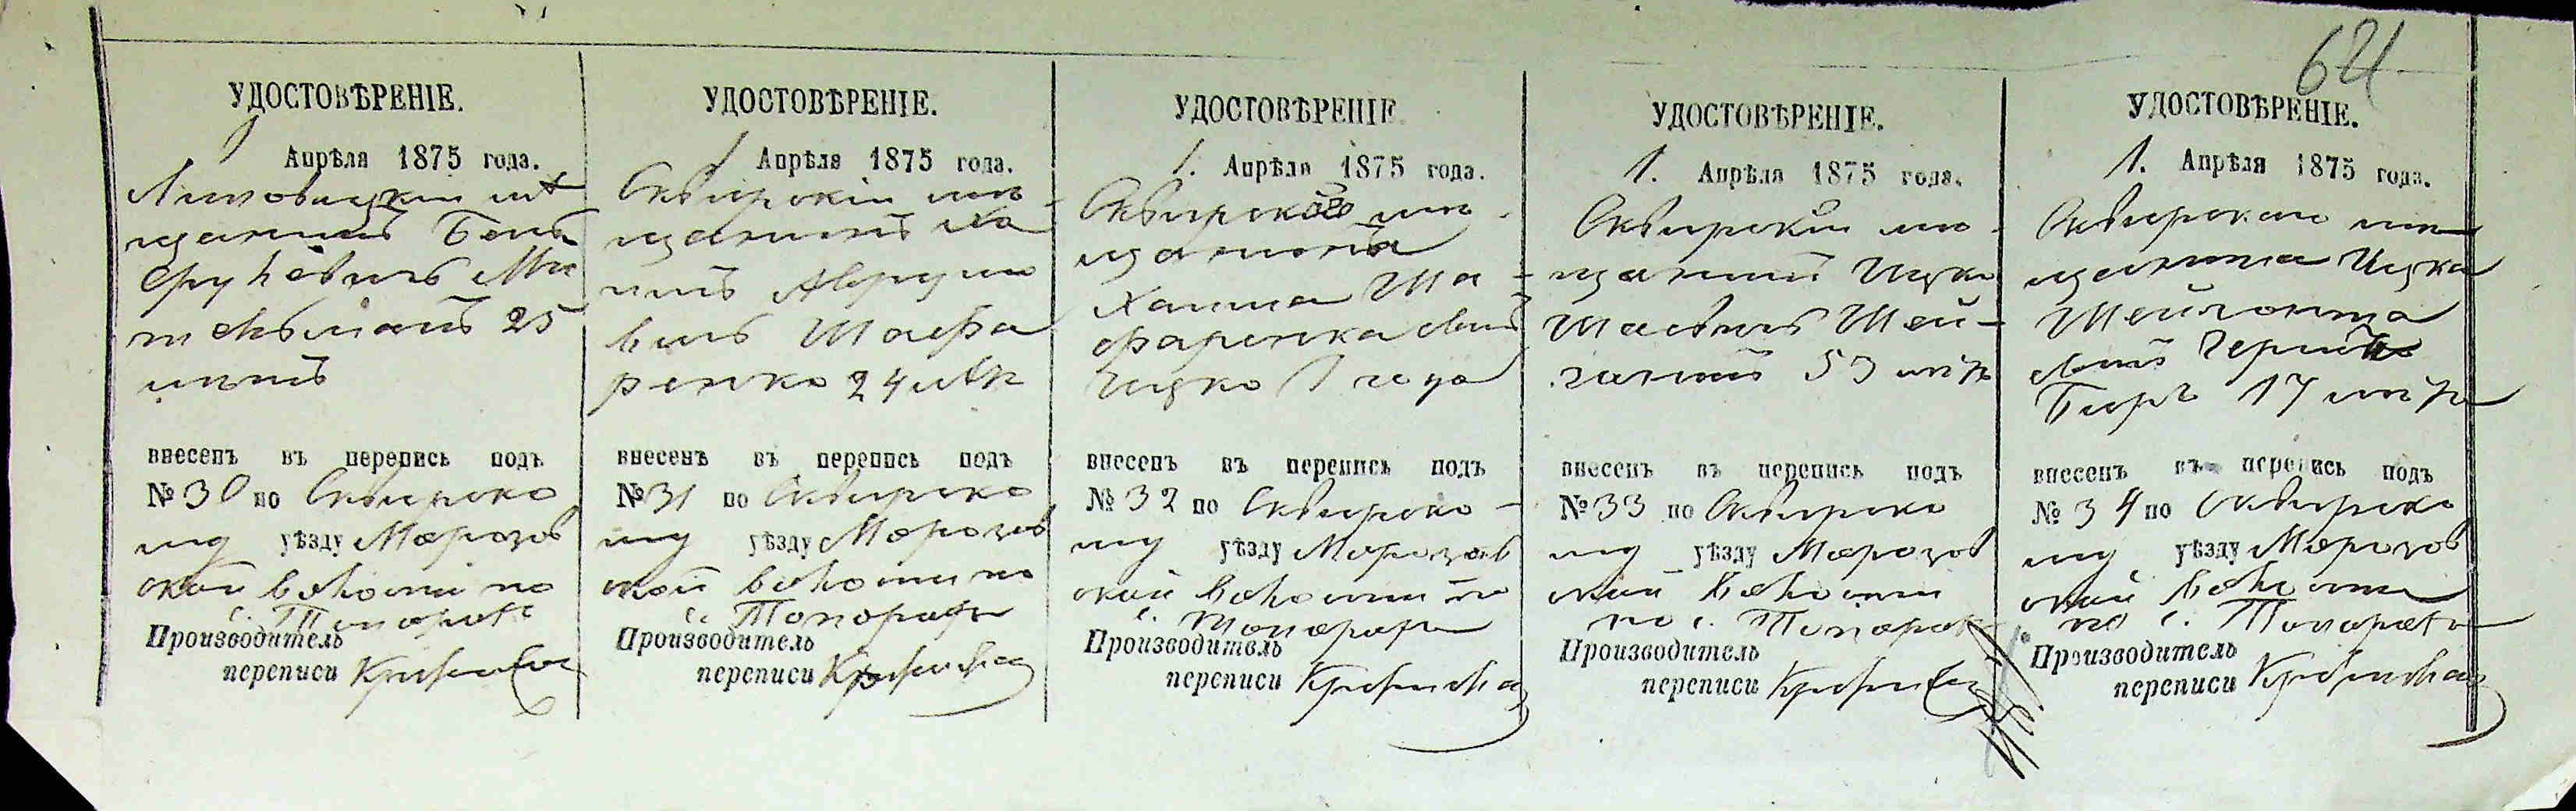 621
УДОСТОВѢРЕНІЕ.
1 Апрѣля 1875 года.
Липовецкій мѣ
щанинъ Бень
25
лѣтъ
внесенъ въ перепись подъ
№ 30 по Сквирско
му уѣзду Морозов
ской волости по
с. Топоровъ
Производитель
переписи
УДОСТОВѢРЕНІЕ.
1 Апрѣля 1875 года.
Сквирскій мѣ
щанинъ Ха
имъ Аврумо
вичъ Шафа
ренко 24 лѣт
внесенъ въ перепись подъ
№ 31 по Сквирско
му уѣзду Морозов
ской волости по
с. Топоры
Производитель
переписи
УДОСТОВѢРЕНІЕ
1. Апрѣля 1875 года.
Сквирского мѣ
щанина
Хаима Ша
фаренка сынъ
Ицко 1 года
внесенъ въ перепись подъ
№ 32 по Сквирско
му уѣзду Морозов
ской волости по
с. Топоры
Производитель
переписи
УДОСТОВѢРЕНІЕ.
1. Апрѣля 1875 года.
Сквирскій мѣ
щанинъ Ицко
Шаевичъ Шей
53 лѣтъ
внесенъ въ перепись подъ
№ 33 по Сквирско
му уѣзду Морозов
ской волости
по с. Топоров
Производитель
переписи
УДОСТОВѢРЕНІЕ.
1. Апрѣля 1875 года.
Сквирскаго мѣ
щанина Ицка
сынъ
17 лѣтъ
внесенъ въ перепись подъ
№ 34 по Сквирско
му уѣзду Морозов
ской волости
по с.
Производитель
переписи